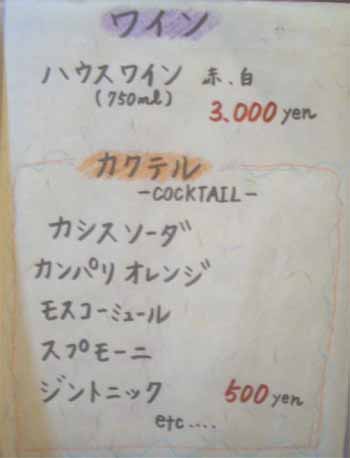 ワイン
ハウスワイン 赤、白
(750ml)
3,000 yen
カクテル
-COCKTAIL-
カシスソーダ
カンパリオレンジ
モスコーミュール
スプモーニ
ジントニック 500 yen
etc....